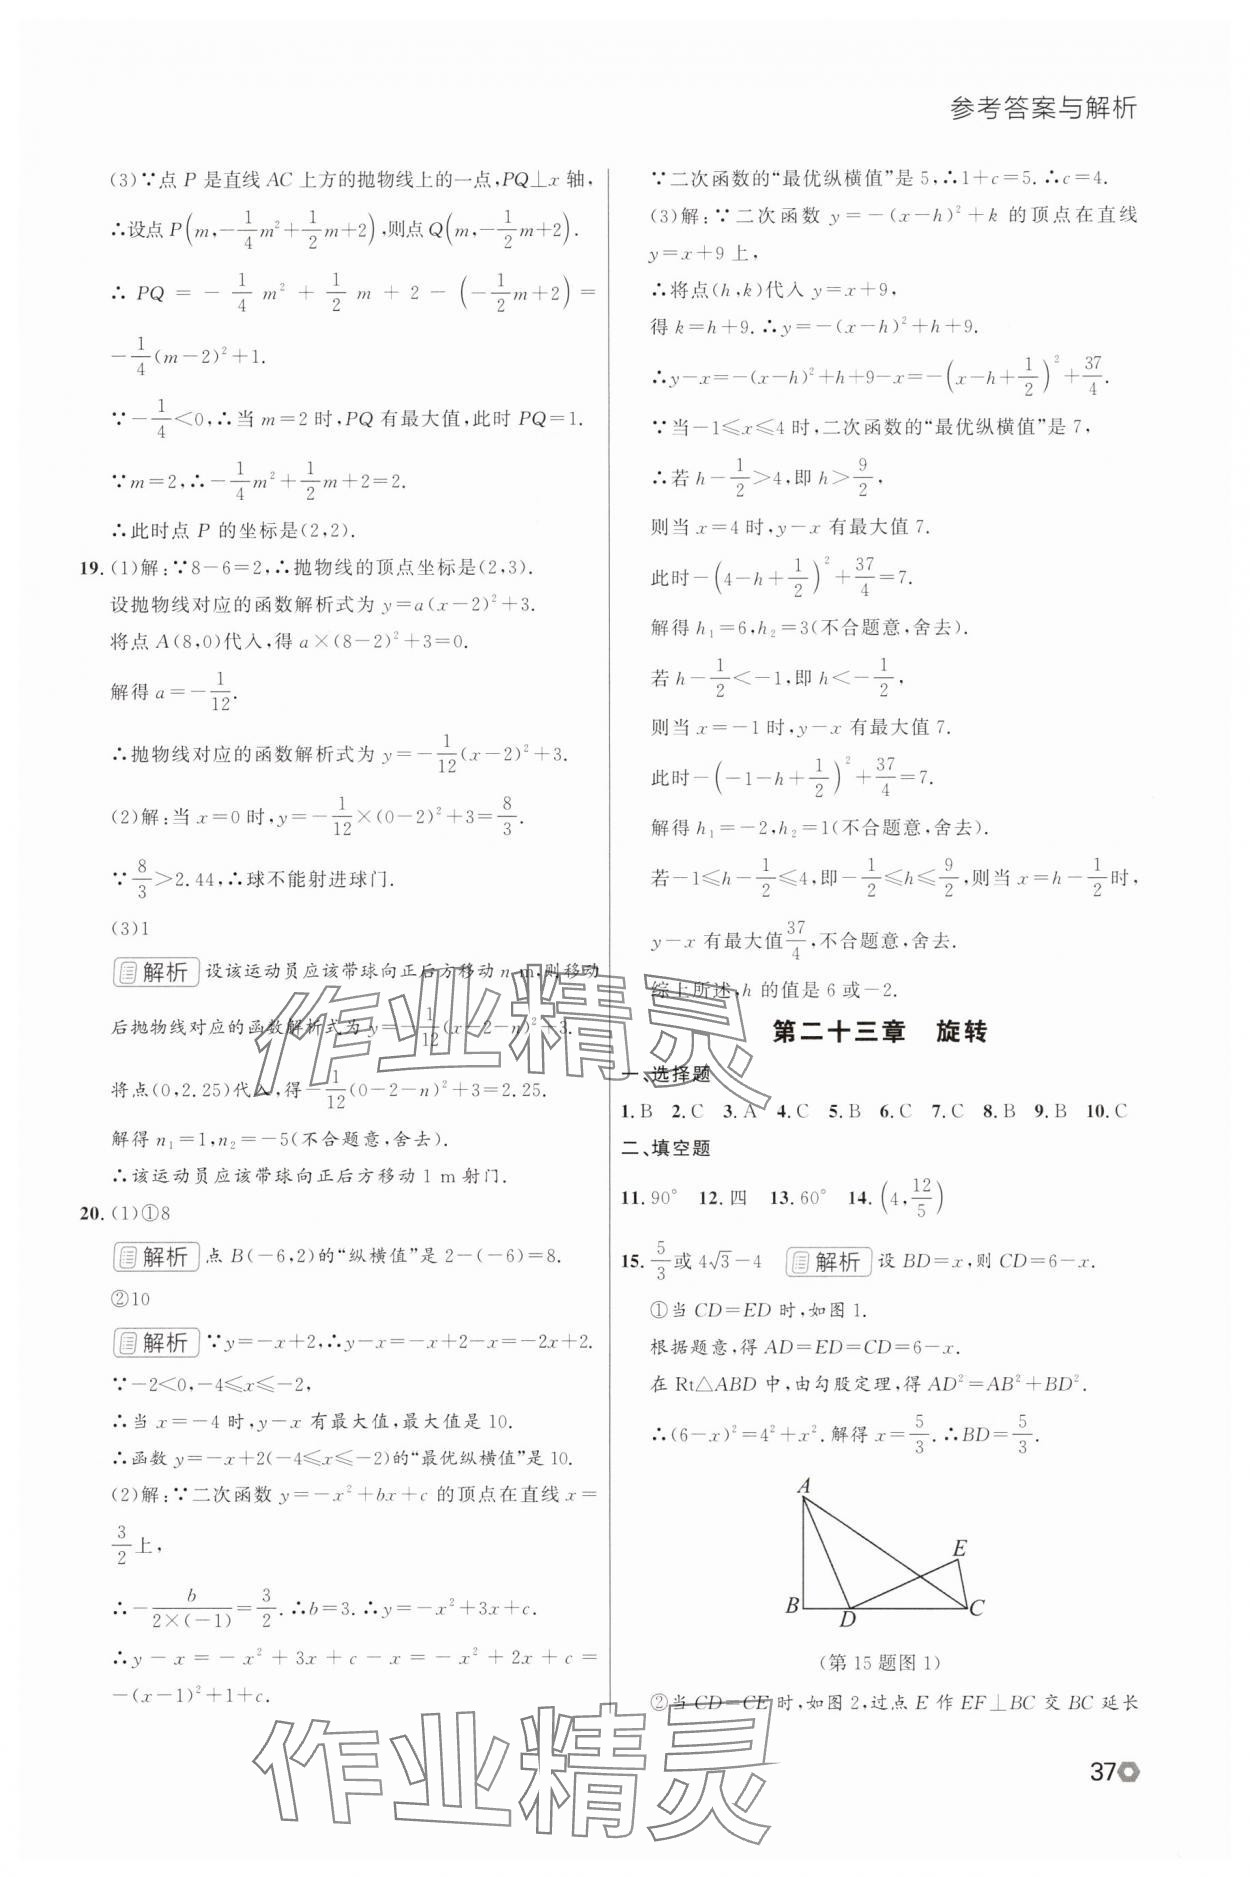 参考答案与解析
(3)∵点 P 是直线 AC 上方的抛物线上的一点,PQ⊥x 轴,
∴设点 P(m,-1/4m²+1/2m+2),则点 Q(m,-1/2m+2).
∴ PQ = -1/4 m² + 1/2 m + 2 - (-1/2m+2) =
-1/4(m-2)²+1.
∵-1/4<0,∴当 m=2 时,PQ 有最大值,此时 PQ=1.
∵m=2,∴-1/4m²+1/2m+2=2.
∴此时点 P 的坐标是(2,2).
19. (1)解:∵8-6=2,∴抛物线的顶点坐标是(2,3).
设抛物线对应的函数解析式为 y=a(x-2)²+3.
将点 A(8,0)代入,得 a×(8-2)²+3=0.
解得 a=-1/12.
∴抛物线对应的函数解析式为 y=-1/12(x-2)²+3.
(2)解:当 x=0 时,y=-1/12×(0-2)²+3=8/3.
∵8/3>2.44,∴球不能射进球门.
(3)1
解析 设该运动员应该带球向正后方移动 n m,则移动
后抛物线对应的函数解析式为 y=-1/12(x-2-n)²+3.
将点(0,2.25)代入,得-1/12(0-2-n)²+3=2.25.
解得 n₁=1,n₂=-5(不合题意,舍去).
∴该运动员应该带球向正后方移动 1 m 射门.
20. (1)①8
解析 点 B(-6,2)的“纵横值”是 2-(-6)=8.
②10
解析 ∵y=-x+2,∴y-x=-x+2-x=-2x+2.
∵-2<0,-4≤x≤-2,
∴当 x=-4 时,y-x 有最大值,最大值是 10.
∴函数 y=-x+2(-4≤x≤-2)的“最优纵横值”是 10.
(2)解:∵二次函数 y=-x²+bx+c 的顶点在直线 x=
3/2上,
∴-b/(2×(-1))=3/2.∴b=3.∴y=-x²+3x+c.
∴y-x=-x²+3x+c-x=-x²+2x+c=
-(x-1)²+1+c.
∵二次函数的“最优纵横值”是 5,∴1+c=5.∴c=4.
(3)解:∵二次函数 y=-(x-h)²+k 的顶点在直线
y=x+9 上,
∴将点(h,k)代入 y=x+9,
得 k=h+9.∴y=-(x-h)²+h+9.
∴y-x=-(x-h)²+h+9-x=-(x-h+1/2)²+37/4.
∵当-1≤x≤4 时,二次函数的“最优纵横值”是 7,
∴若 h-1/2>4,即 h>9/2,
则当 x=4 时,y-x 有最大值 7.
此时-(4-h+1/2)²+37/4=7.
解得 h₁=6,h₂=3(不合题意,舍去).
若 h-1/2<-1,即 h<-1/2,
则当 x=-1 时,y-x 有最大值 7.
此时-(-1-h+1/2)²+37/4=7.
解得 h₁=-2,h₂=1(不合题意,舍去).
若-1≤h-1/2≤4,即-1/2≤h≤9/2,则当 x=h-1/2时,
y-x 有最大值37/4,不合题意,舍去.
综上所述,h 的值是 6 或-2.
第二十三章 旋转
一、选择题
1. B 2. C 3. A 4. C 5. B 6. C 7. C 8. B 9. B 10. C
二、填空题
11. 90° 12. 四 13. 60° 14. (4,12/5)
15. 5/3或 4√3-4 解析 设 BD=x,则 CD=6-x.
①当 CD=ED 时,如图 1.
根据题意,得 AD=ED=CD=6-x.
在 Rt△ABD 中,由勾股定理,得 AD²=AB²+BD².
∴(6-x)²=4²+x².解得 x=5/3.∴BD=5/3.
A
E
B
D
C
(第 15 题图 1)
②当 CD=CE 时,如图 2,过点 E 作 EF⊥BC 交 BC 延长
37
作业精灵
作业精灵